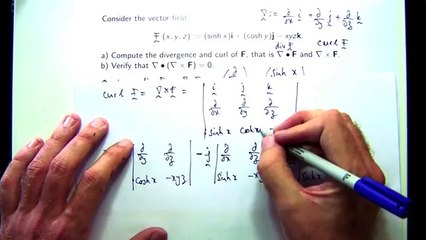 Consider the vector field
∇ := ∂/∂x i + ∂/∂y j + ∂/∂z k
F(x, y, z) := (sinh x)i + (cosh y)j − xyzk.
div F curl F
a) Compute the divergence and curl of F. that is ∇ • F and ∇ × F.
b) Verify that ∇ • (∇ × F) = 0.
curl F = ∇ × F = | i j k
∂/∂x ∂/∂y ∂/∂z
sinh x cosh y
∂/∂y ∂/∂z − j ∂/∂x ∂/∂z
cosh x −xyz sinh x −xyz sinh x